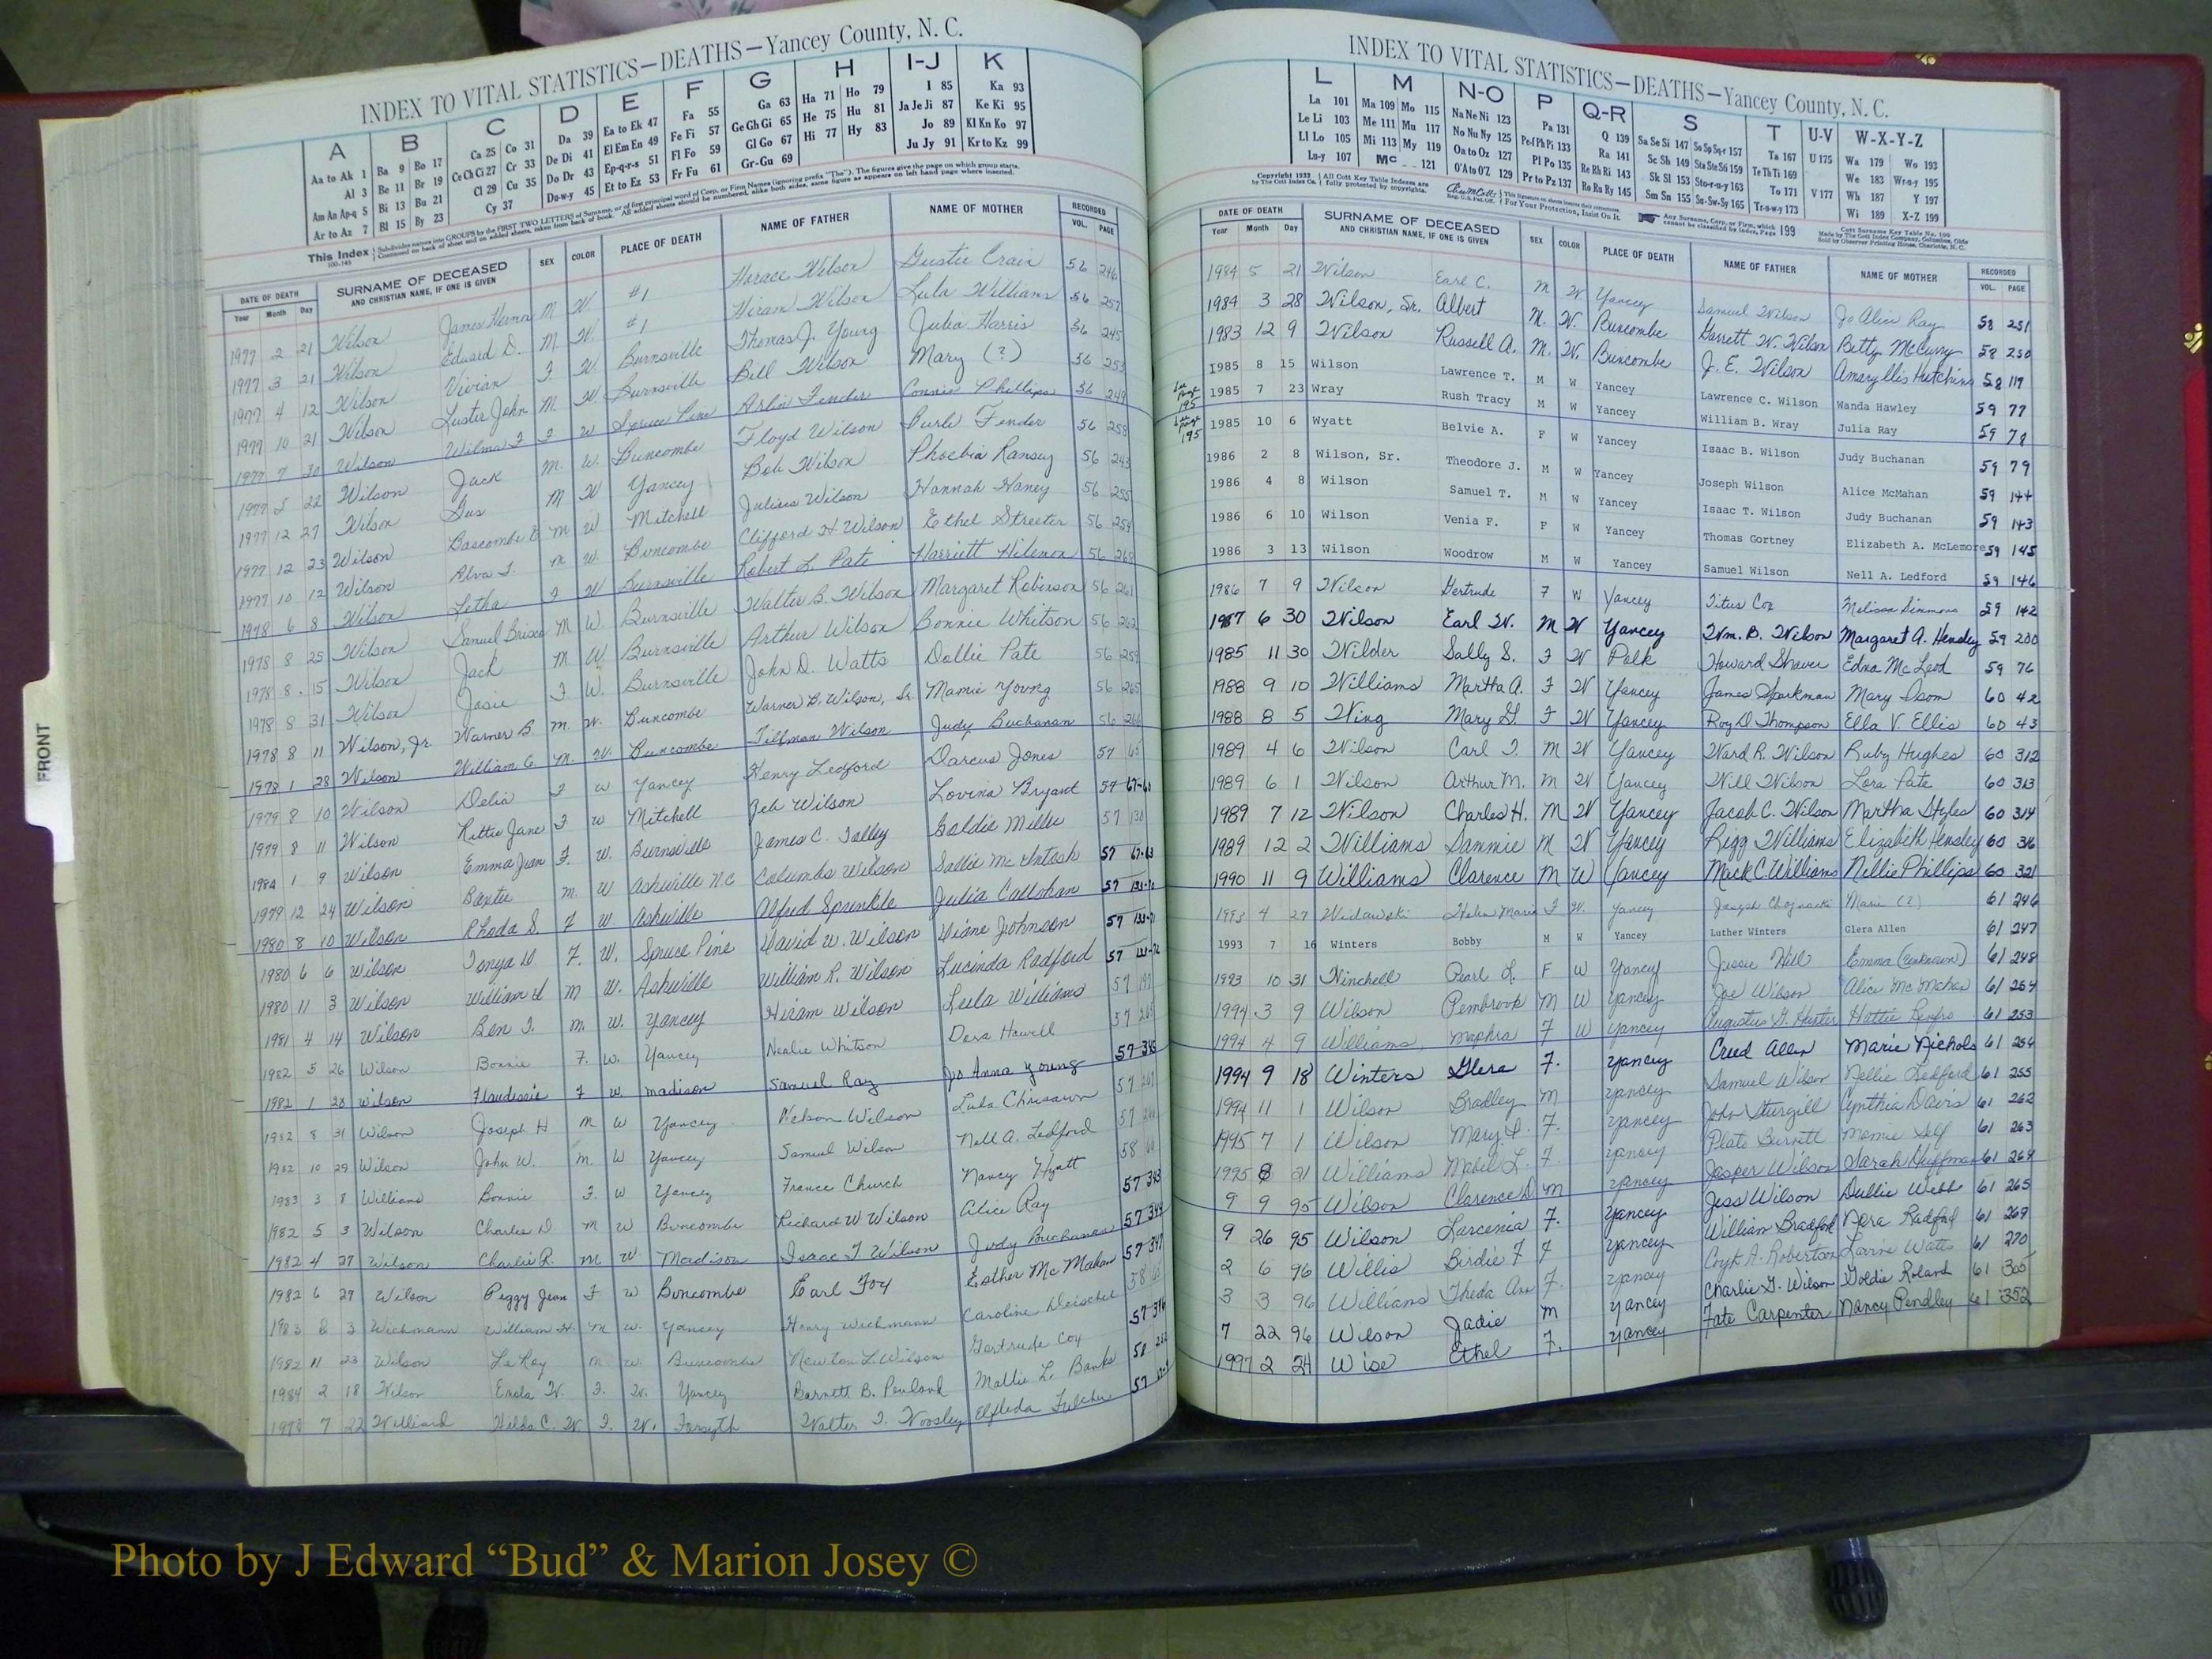 INDEX TO VITAL STATISTICS—DEATHS—Yancey County, N. C.
A B C D E F G H I-J K
Aa to Ak 1 Ba 9 Bo 17 Ca 25 Co 31 Da 39 Ea to Ek 47 Fa 55 Ga 63 Ha 71 Ho 79 I 85 Ka 93
Al 3 Be 11 Br 19 Ce Ch Ci 27 Cr 33 De Di 41 El Em En 49 Fe Fi 57 Ge Gh Gi 65 He 75 Hu 81 Ja Je Ji 87 Ke Ki 95
Am An Ap-q 5 Bi 13 Bu 21 Cl 29 Cu 35 Do Dr 43 Ep-q-r-s 51 Fl Fo 59 Gl Go 67 Hi 77 Hy 83 Jo 89 Kl Kn Ko 97
Ar to Az 7 Bl 15 By 23 Cy 37 Du-w-y 45 Et to Ez 53 Fr Fu 61 Gr-Gu 69 Ju Jy 91 Kr to Kz 99
This Index
DATE OF DEATH SURNAME OF DECEASED SEX COLOR PLACE OF DEATH NAME OF FATHER NAME OF MOTHER RECORDED
Year Month Day AND CHRISTIAN NAME, IF ONE IS GIVEN VOL. PAGE
1977 2 21 Wilson James Vernon M W. #1 Horace Wilson Gustie Crain 56 246
1977 3 21 Wilson Edward D. M W. #1 Hiram Wilson Lula Williams 56 257
1977 4 12 Wilson Vivian F W Burnsville Thomas J. Young Julia Harris 56 245
1977 10 21 Wilson Luster John M. W Burnsville Bill Wilson Mary (?) 56 253
1977 7 30 Wilson Wilma F F W Spruce Pine Arlin Fender Connie Phillips 56 249
1977 5 22 Wilson Jack M. W. Buncombe Floyd Wilson Burle Fender 56 258
1977 12 27 Wilson Gus M W Yancey Bob Wilson Phoebia Ramsey 56 243
1977 12 23 Wilson Bascombe E M W Mitchell Julius Wilson Hannah Haney 56 255
1977 10 12 Wilson Alva T. M W. Buncombe Clifford H Wilson Ethel Streeter 56 254
1978 6 8 Wilson Letha F W Burnsville Robert L. Pate Harriett Hilemon 56 268
1978 8 25 Wilson Samuel Brisco M W. Burnsville Walter B. Wilson Margaret Robinson 56 261
1978 8 15 Wilson Jack M W. Burnsville Arthur Wilson Bonnie Whitson 56 262
1978 8 31 Wilson Josie F W. Burnsville John D. Watts Dollie Pate 56 259
1978 8 11 Wilson, Jr. Warner B. M. W. Buncombe Warner B. Wilson, Sr. Mamie Young 56 265
1978 1 28 Wilson William G. M. W. Buncombe Tillman Wilson Judy Buchanan 56 266
1979 8 10 Wilson Delia F W Yancey Henry Ledford Darcus Jones 57 65
1979 8 11 Wilson Hettie Jane F W Mitchell Zeb Wilson Lovina Bryant 57
1982 1 9 Wilson Emma Jean F. W. Burnsville James C. Talley Goldie Miller 57 130
1979 12 24 Wilson Baxter M. W Asheville NC Columbus Wilson Sallie McIntosh 57
1980 8 10 Wilson Rhoda S. F W Asheville Alfred Sprinkle Julia Callahan 57
1980 6 6 Wilson Tonya D F. W. Spruce Pine David W. Wilson Diane Johnson 57
1980 11 3 Wilson William M W. Asheville William R. Wilson Lucinda Radford 57
1981 4 14 Wilson Ben F. M. W. Yancey Hiram Wilson Lula Williams 57
1982 5 26 Wilson Bonnie F. W. Yancey Nealie Whitson Dora Howell 57
1982 1 28 Wilson F W. Madison Samuel Ray Jo Anna Young 57
1982 8 31 Wilson Joseph H M W Yancey Nelson Wilson Lula Chrisawn 57
1982 10 29 Wilson John W. M. W Yancey Samuel Wilson Nell A. Ledford 57
1983 3 8 Williams Bonnie F. W Yancey France Church Nancy Hyatt 58
1982 5 3 Wilson Charles D. M W Buncombe Richard W Wilson Alice Ray 57 343
1982 4 27 Wilson Charlie R. M W. Madison Isaac T Wilson Judy Buchanan 57 344
1982 6 29 Wilson Peggy Jean F W Buncombe Earl Fox Esther McMahan 57 347
1983 8 3 Wichmann William H. M W. Yancey Henry Wichmann Caroline 58
1982 11 23 Wilson LaRoy M W. Buncombe Newton L. Wilson Gertrude Cox 57
1984 2 18 Wilson Enola W. F. W. Yancey Barnett B. Penland Mollie L. Banks 58
1978 7 22 Williard Hilda C. W. F. W. Forsyth Walter T. Woosley Elfleda Fulcher 57
FRONT
INDEX TO VITAL STATISTICS—DEATHS—Yancey County, N. C.
L M N-O P Q-R S T U-V W-X-Y-Z
La 101 Ma 109 Mo 115 Na Ne Ni 123 Pa 131 Q 139 Sa Se Si 147 So Sp Sq-r 157 Ta 167 U 175 Wa 179 Wo 193
Le Li 103 Me 111 Mu 117 No Nu Ny 125 Pe-f Ph Pi 133 Ra 141 Sc Sh 149 Sta Ste Sti 159 Te Th Ti 169 We 183 Wr-u-y 195
Ll Lo 105 Mi 113 My 119 Oa to Oz 127 Pl Po 135 Re Rh Ri 143 Sk Sl 153 Sto-r-u-y 163 To 171 V 177 Wh 187 Y 197
Lu-y 107 Mc 121 O'A to O'Z 129 Pr to Pz 137 Ro Ru Ry 145 Sm Sn 155 Su-Sw-Sy 165 Tr-u-w-y 173 Wi 189 X-Z 199
DATE OF DEATH SURNAME OF DECEASED SEX COLOR PLACE OF DEATH NAME OF FATHER NAME OF MOTHER RECORDED
Year Month Day AND CHRISTIAN NAME, IF ONE IS GIVEN VOL. PAGE
1984 5 21 Wilson Earl C. M W. Yancey Samuel Wilson Jo Alice Ray 58 251
1984 3 28 Wilson, Sr. Albert M. W. Buncombe Garrett W. Wilson Betty McCurry 58 250
1983 12 9 Wilson Russell A. M. W. Buncombe J. E. Wilson Amaryllis Hutchins 58 119
1985 8 15 Wilson Lawrence T. M W Yancey Lawrence C. Wilson Wanda Hawley 59 77
See Page 195 1985 7 23 Wray Rush Tracy M W Yancey William B. Wray Julia Ray 59 78
See Page 195 1985 10 6 Wyatt Belvie A. F W Yancey Isaac B. Wilson Judy Buchanan 59 79
1986 2 8 Wilson, Sr. Theodore J. M W Yancey Joseph Wilson Alice McMahan 59 144
1986 4 8 Wilson Samuel T. M W Yancey Isaac T. Wilson Judy Buchanan 59 143
1986 6 10 Wilson Venia F. F W Yancey Thomas Gortney Elizabeth A. McLemore 59 145
1986 3 13 Wilson Woodrow M W Yancey Samuel Wilson Nell A. Ledford 59 146
1986 7 9 Wilson Gertrude F W Yancey Titus Cox Melissa Simmons 59 142
1987 6 30 Wilson Earl W. M W Yancey Wm. B. Wilson Margaret A. Hensley 59 200
1985 11 30 Wilder Sally S. F W Polk Howard Shaver Edna McLeod 59 76
1988 9 10 Williams Martha A. F W Yancey James Sparkman Mary Isom 60 42
1988 8 5 Wing Mary G. F W Yancey Roy D Thompson Ella V. Ellis 60 43
1989 4 6 Wilson Carl T. M W Yancey Ward R. Wilson Ruby Hughes 60 312
1989 6 1 Wilson Arthur M. M W Yancey Will Wilson Lora Pate 60 313
1989 7 12 Wilson Charles H. M W Yancey Jacob C. Wilson Martha Styles 60 314
1989 12 2 Williams Sammie M W Yancey Rigg Williams Elizabeth Hensley 60 316
1990 11 9 Williams Clarence M W Yancey Mack C Williams Nellie Phillips 60 321
1993 4 27 Helen Marie F W. Yancey Joseph Marie (?) 61 246
1993 7 16 Winters Bobby M W Yancey Luther Winters Glera Allen 61 247
1993 10 31 Winchell Pearl L. F W Yancey Jessie Hill Emma (unknown) 61 248
1994 3 9 Wilson Pembrook M W Yancey Joe Wilson Alice McMahan 61 254
1994 4 9 Williams, Maphra F W Yancey Augustus G. Hunter Hattie Renfro 61 253
1994 9 18 Winters Glera F. Yancey Creed Allen Marie Nichols 61 256
1994 11 1 Wilson Bradley M Yancey Samuel Wilson Nellie Ledford 61 255
1995 7 1 Wilson Mary F. Yancey John Sturgill Cynthia Davis 61 262
1995 8 21 Williams Mabel L. F. Yancey Plato Burnett Mamie Self 61 263
9 9 95 Wilson Clarence D. M Yancey Jasper Wilson Sarah Huffman 61 264
9 26 95 Wilson Larcenia F. Yancey Jess Wilson Dullie Webb 61 265
2 6 96 Willis Birdie F F Yancey William Bradford Nora Radford 61 269
3 3 96 Williams Theda Ann F. Yancey Coyt A. Robertson Lavine Watts 61 270
7 22 96 Wilson Jadie M Yancey Charlie G. Wilson Goldie Roland 61 300
1997 2 24 Wise Ethel F. Yancey Fate Carpenter Nancy Pendley 61 352
Photo by J Edward “Bud” & Marion Josey ©